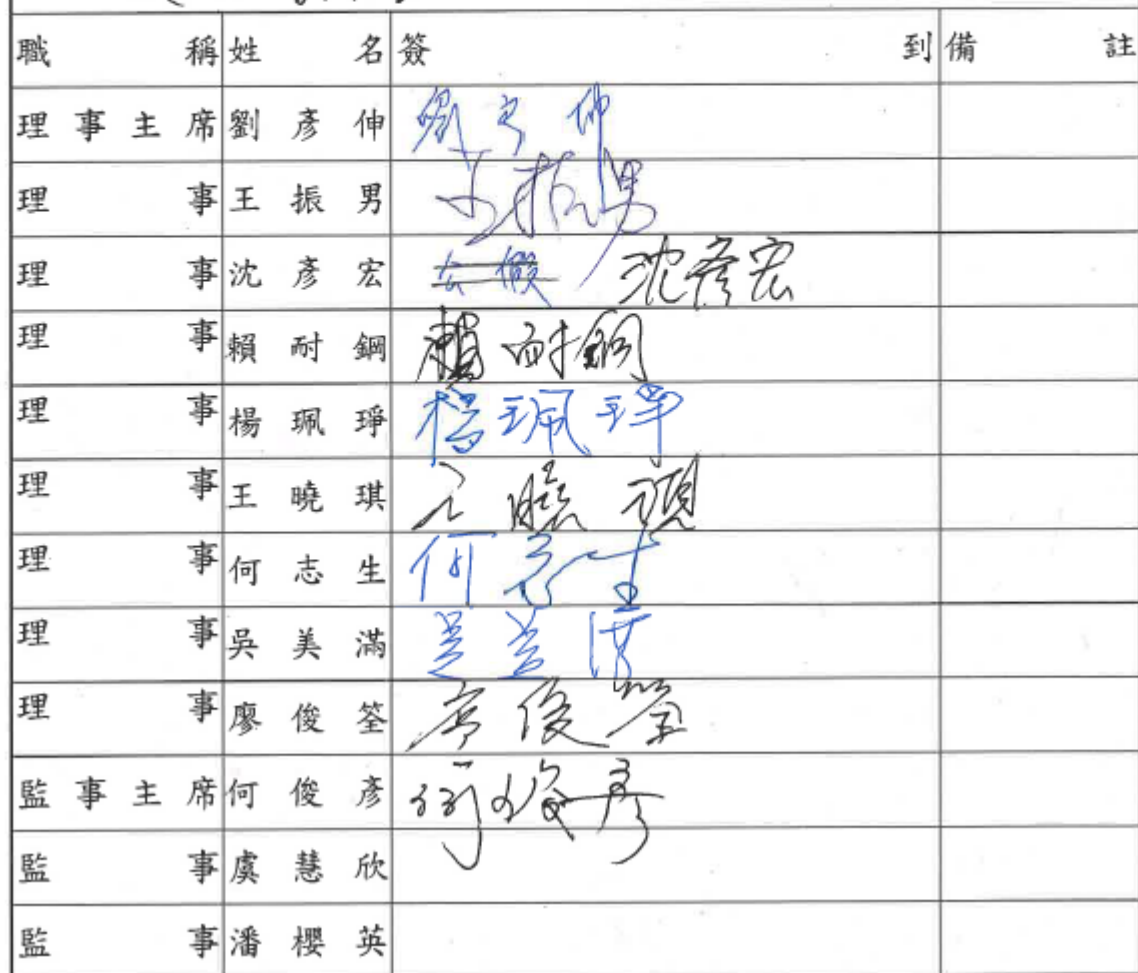 職稱 姓名 簽到 備註
理事主席 劉彥伸 劉彥伸
理事 王振男 王振男
理事 沈彥宏 公假 沈彥宏
理事 賴耐鋼 賴耐鋼
理事 楊珮琤 楊珮琤
理事 王曉琪 王曉琪
理事 何志生 何志生
理事 吳美滿 吳美滿
理事 廖俊筌 廖俊筌
監事主席 何俊彥 何俊彥
監事 虞慧欣
監事 潘櫻英